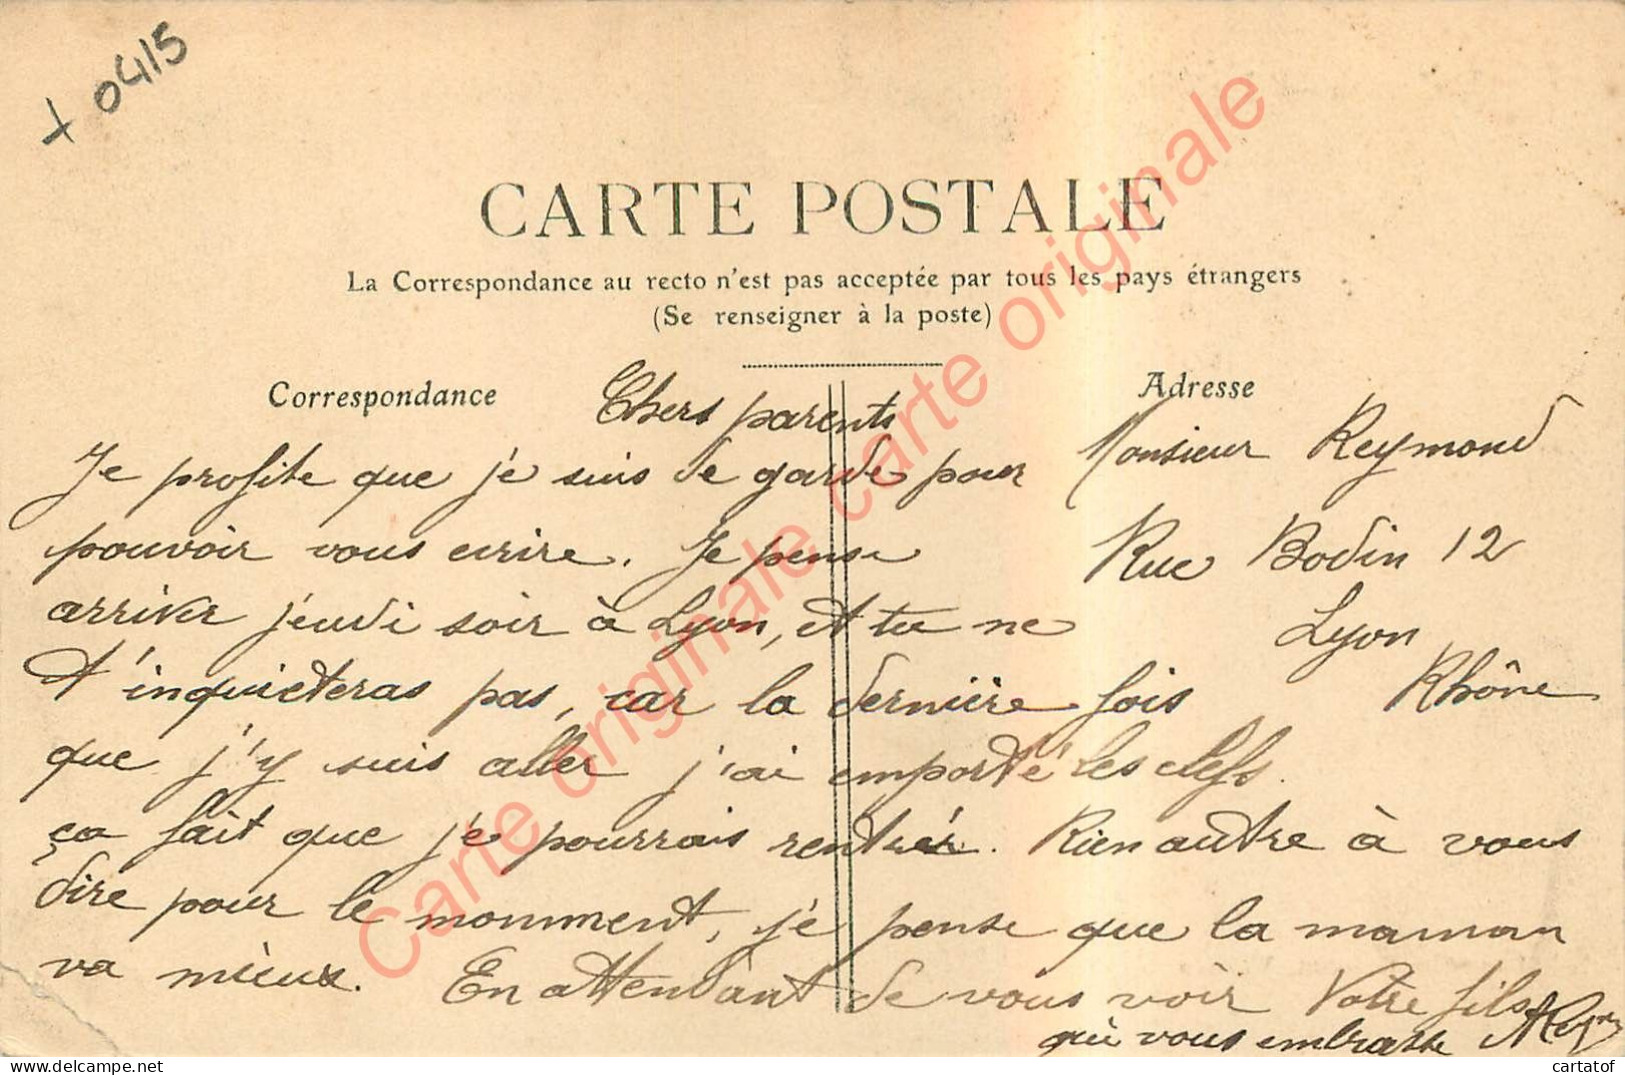 + 0415
CARTE POSTALE
La Correspondance au recto n'est pas acceptée par tous les pays étrangers
(Se renseigner à la poste)
Correspondance
Adresse
Chers parents
Je profite que je suis de garde pour
pouvoir vous ecrire. Je pense
arriver jeudi soir à Lyon, et tu ne
t'inquieteras pas, car la dernière fois
que j'y suis aller j'ai emporté les clefs.
ça fait que je pourrais rentrer. Rien autre à vous
dire pour le momment, je pense que la maman
va mieux. En attendant de vous voir Votre fils
qui vous embrasse
Monsieur Reymond
Rue Bodin 12
Lyon
Rhône
Carte originale carte originale
cartatof